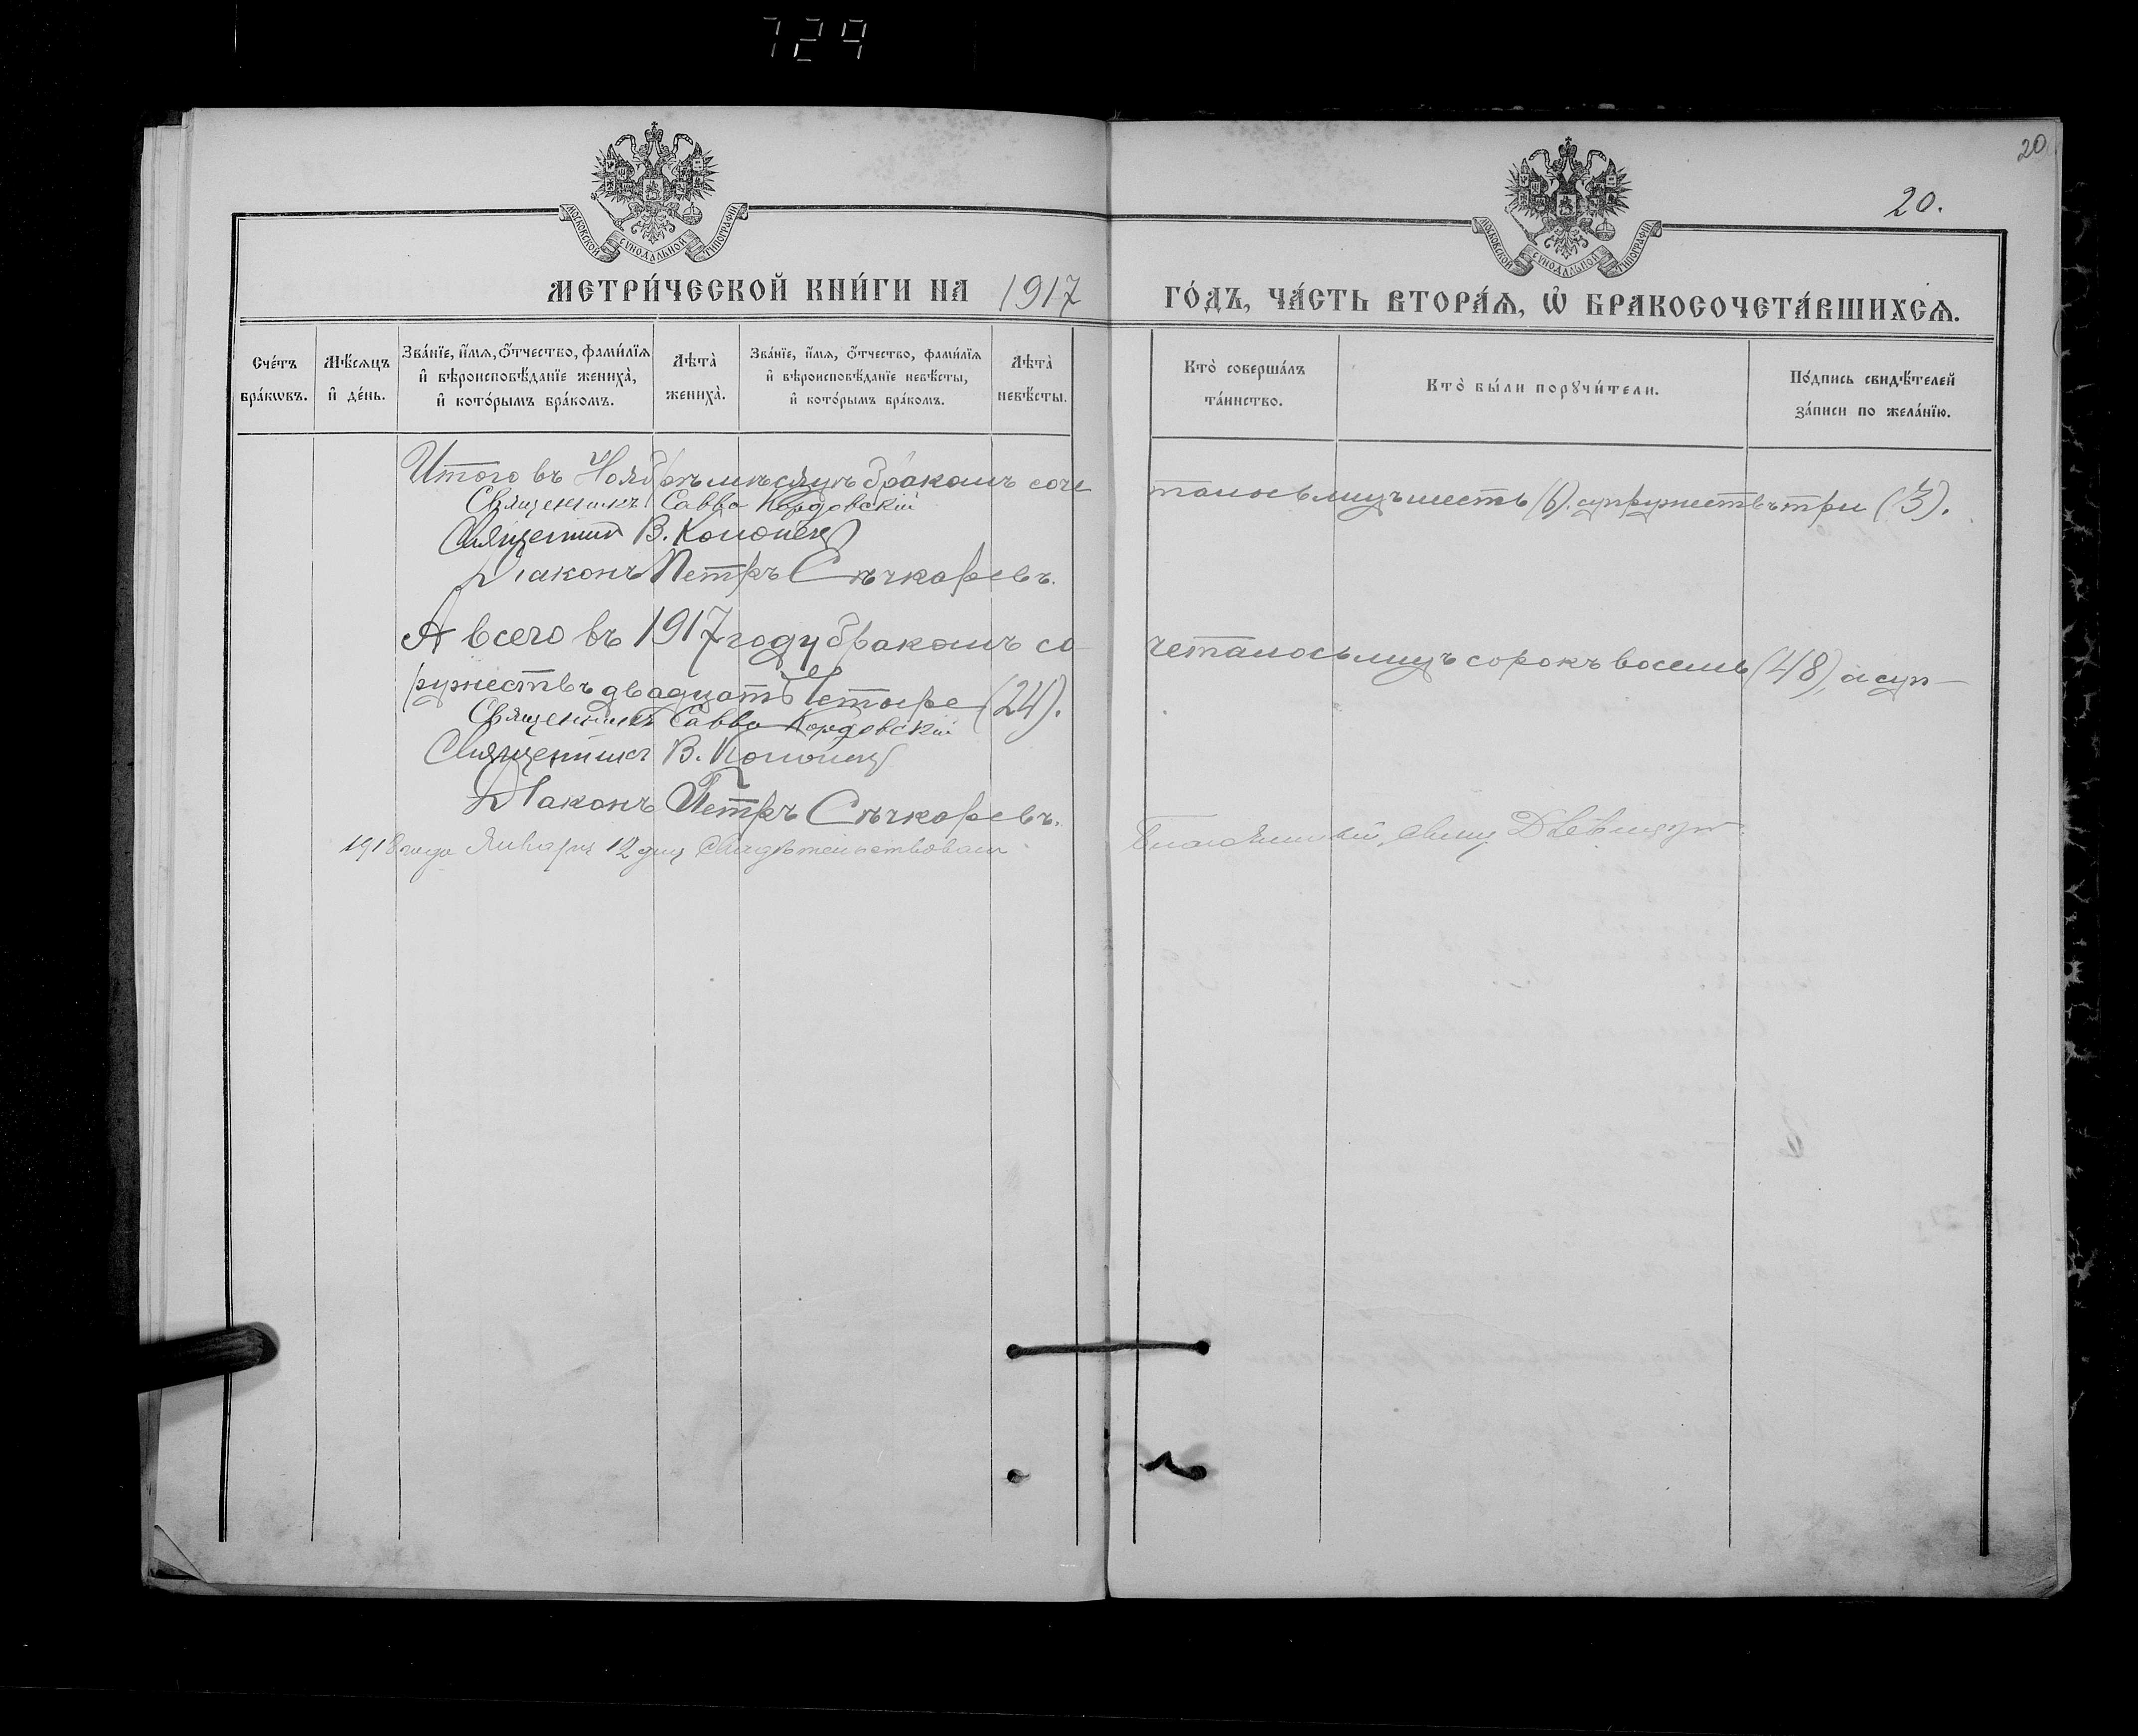 729
20
20.
МОСКОВСКОЙ СѴНОДАЛЬНОЙ ТИПОГРАФІИ
МОСКОВСКОЙ СѴНОДАЛЬНОЙ ТИПОГРАФІИ
МЕТРИ́ЧЕСКОЙ КНИ́ГИ НА 1917 ГО́ДЪ, ЧА́СТЬ ВТОРА́Ѧ, Ѽ БРАКОСОЧЕТА́ВШИХСѦ.
Сче́тъ бра́кѡвъ.
Мѣ́сѧцъ и҆ де́нь.
Зва́нїе, и҆́мѧ, ѻ҆́тчество, фами́лїѧ и҆ вѣроисповѣ́данїе жениха̀, и҆ кото́рымъ бра́комъ.
Лѣта̀ жениха̀.
Зва́нїе, и҆́мѧ, ѻ҆́тчество, фами́лїѧ и҆ вѣроисповѣ́данїе невѣ́сты, и҆ кото́рымъ бра́комъ.
Лѣта̀ невѣ́сты.
Кто̀ соверша́лъ та́инство.
Кто̀ бы́ли порꙋчи́тели.
По́дпись свидѣ́телей за́писи по жела́нїю.
Итого въ Ноябрѣ мѣсяцѣ бракомъ соче талось лицъ шесть (6). супружествъ три (3).
Священникъ Савва Кордовскій
Священникъ В.
Діаконъ Петръ Сѣчкаревъ.
А всего въ 1917 году бракомъ со четалось лицъ сорокъ восемь (48), а суп-
ружествъ двадцать четыре (24).
Священникъ Савва Кордовскій
Священникъ В.
Діаконъ Петръ Сѣчкаревъ.
1918 года Января 12 дня Свидѣтельствовалъ